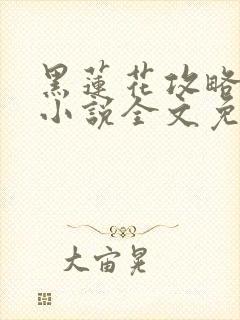 黑蓮花攻略
小說全文免
大宙晃